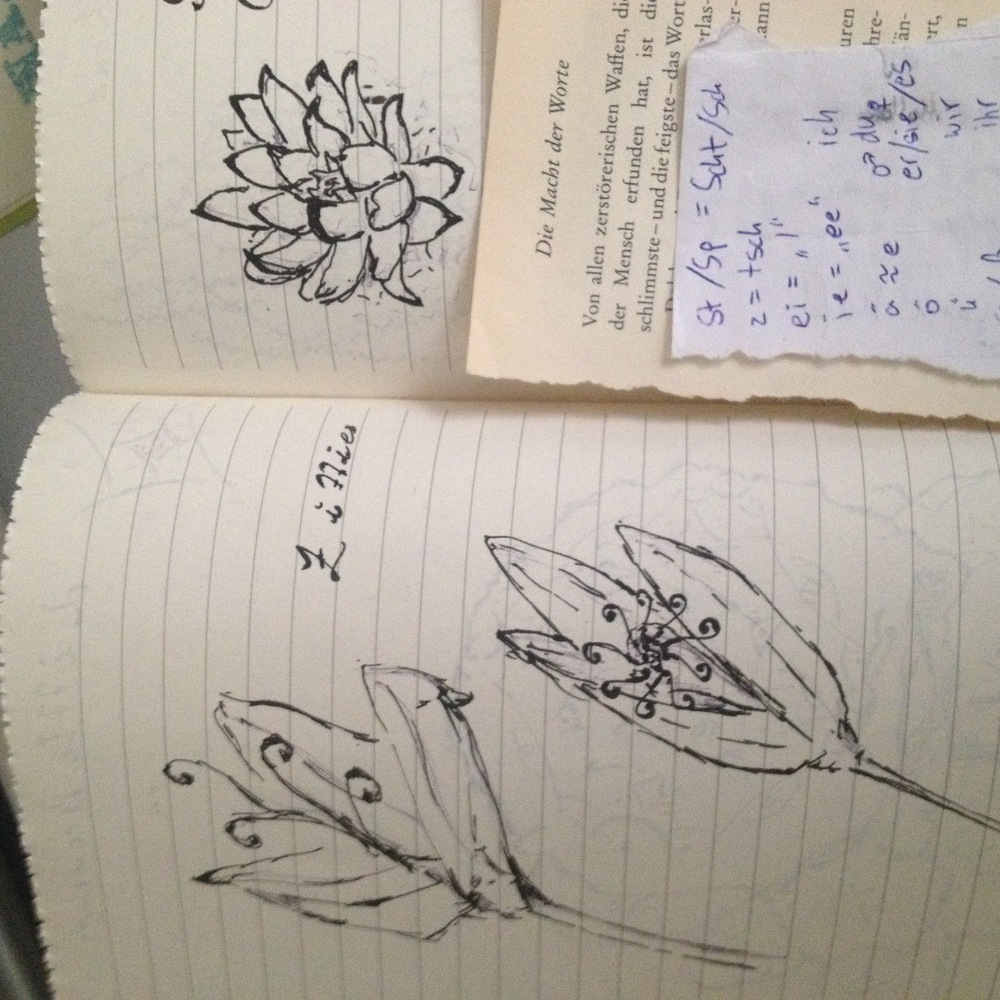 Zinies
Die Macht der Worte
Von allen zerstörerischen Waffen, die
der Mensch erfunden hat, ist die
schlimmste – und die feigste – das Wort
erlas-
er-
ann
uren
hre-
än-
ert,
n
st/sp = Scht/Sch
z = tsch
ei = „I“
ie = „ee“ ich
ä ≈ e ♂ du ♀
ö er/sie/es
ü wir
ihr